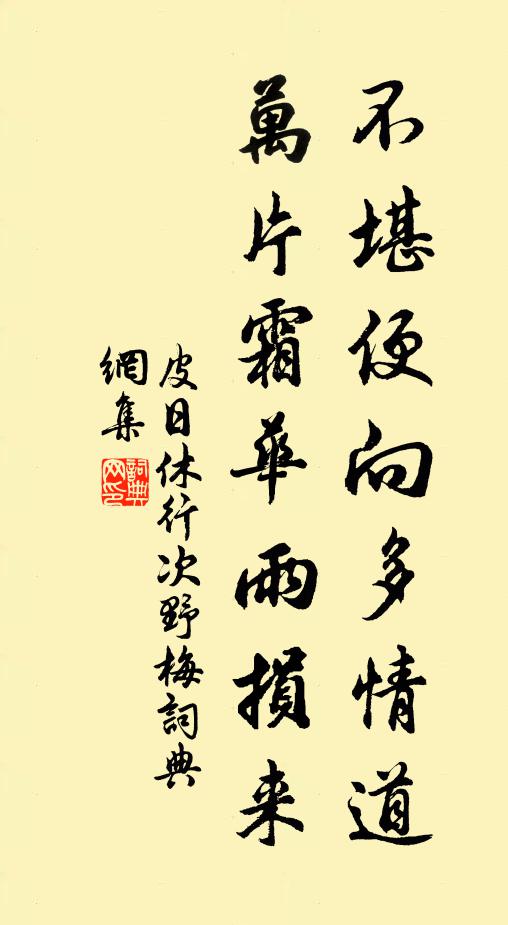 不堪便向多情道
萬片霜華雨損来
皮日休行次野梅詞典
網集
詞典網印